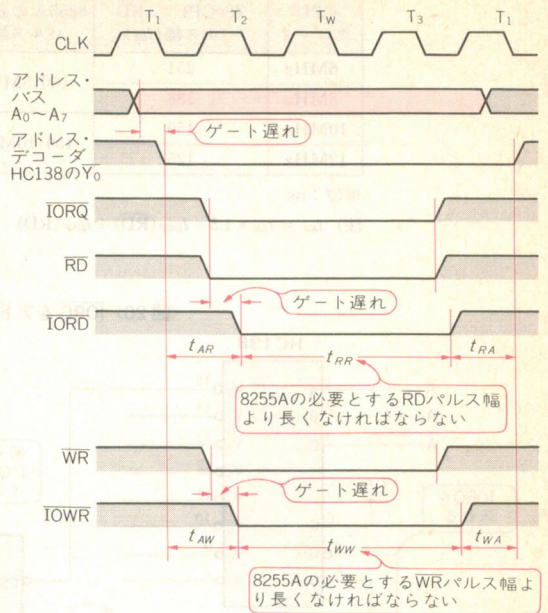 T₁ T₂ T_W T₃ T₁
CLK
アドレス・
バス
A₀～A₇
ゲート遅れ
アドレス・
デコーダ
HC138のY₀
I̅O̅R̅Q̅
R̅D̅
ゲート遅れ
I̅O̅R̅D̅
t_AR t_RR t_RA
8255Aの必要とするR̅D̅パルス幅
より長くなければならない
W̅R̅
ゲート遅れ
I̅O̅W̅R̅
t_AW t_WW t_WA
8255Aの必要とするW̅R̅パルス幅
より長くなければならない